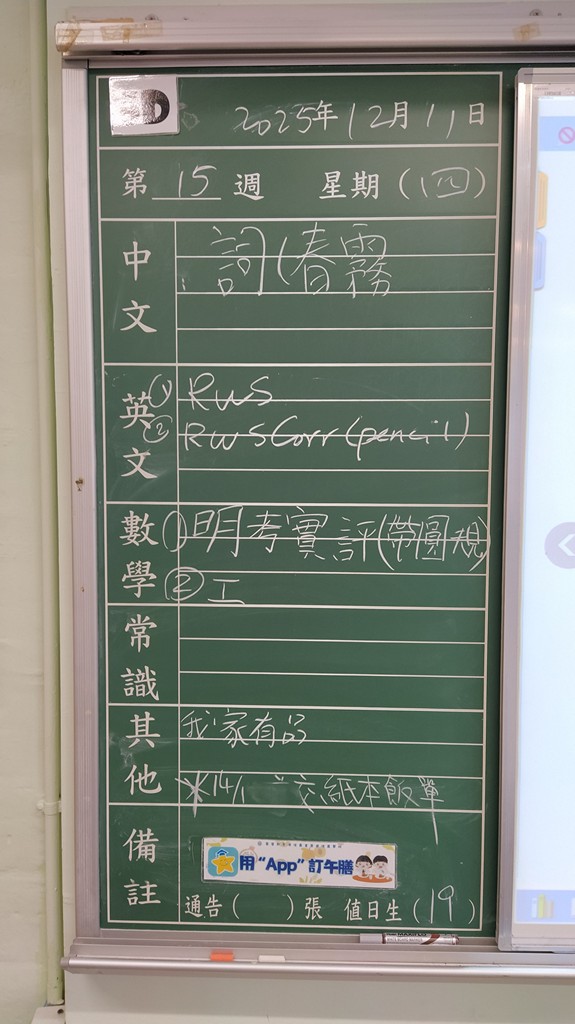 D
2025年12月11日
第 15 週 星期(四)
中文 詞(春霧
英文 (1) RWS
(2) RWS Corr (pencil)
數學 (1) 明考實評(帶圓規)
(2) 工
常識
其他 我家有品
*14/1 交紙本飯單
備註
用“App”訂午膳
通告( )張 值日生(19)